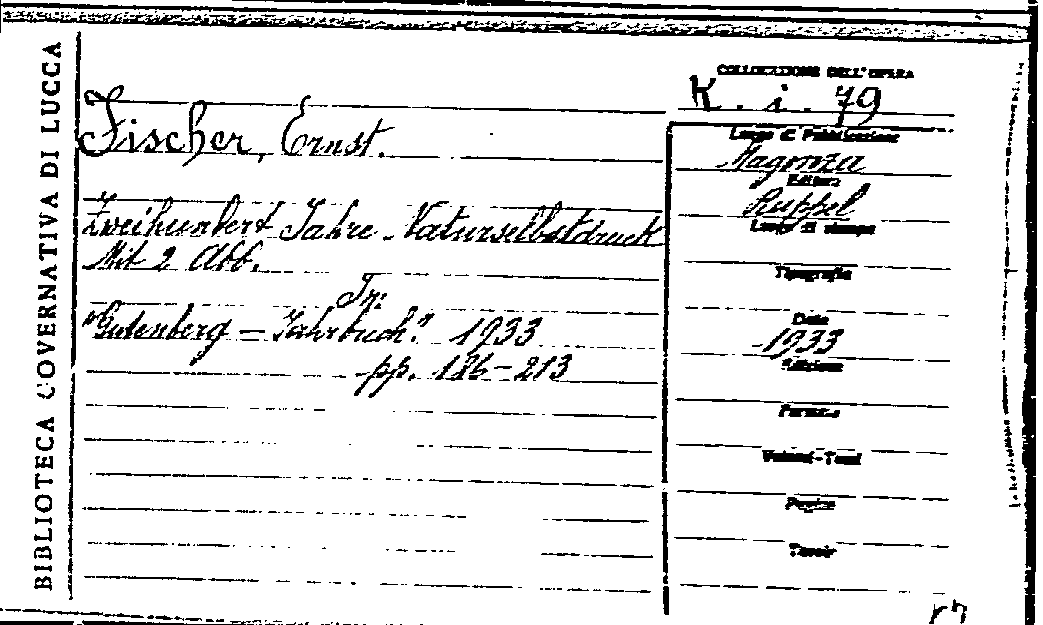 BIBLIOTECA GOVERNATIVA DI LUCCA
COLLOCAZIONE DELL'OPERA
K. i. 79
Fischer, Ernst.
Zweihundert Jahre Naturselbstdruck
Mit 2 Abb.
In:
"Gutenberg - Jahrbuch". 1933
pp. 186-213
Luogo di Pubblicazione
Magonza
Editore
Ruppel
Luogo di stampa
Tipografia
Data
1933
Edizione
Formato
Volumi-Tomi
Pagine
Tavole